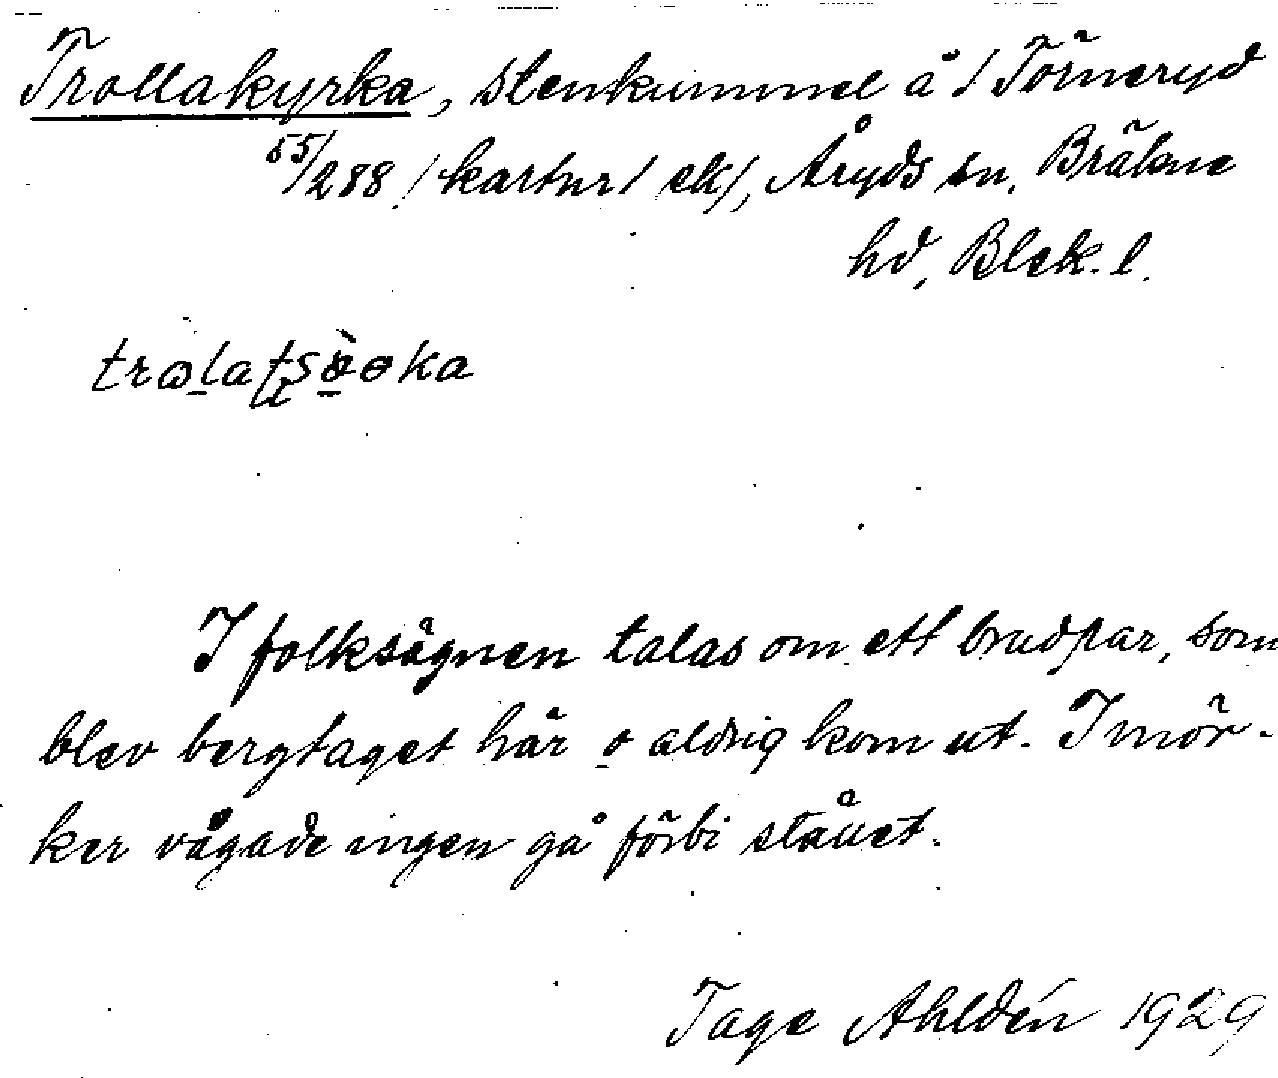 Trollakyrka, stenkummel å 1 Törneryd
55/288 /kartnr/ ek/, Åryds sn, Bräkne
hd, Blek. l.
I folksägnen talas om ett brudpar, som
blev bergtaget här o aldrig kom ut. I mör-
ker vågade ingen gå förbi stället.
Tage Ahldén 1929